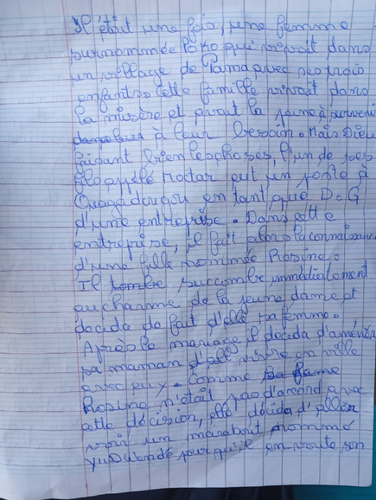 Il était une fois, une femme
surnommée Poko qui vivait dans
un village de Pama avec ses trois
enfants. Cette famille vivait dans
la misère et avait la peine à survenir
à leur besoin. Mais Dieu
faisant bien les choses, l'un de ses
fils appélé Moctar eut un poste à
Ouagadougou en tant que D.G
d'une entreprise. Dans cette
entreprise, il fait alors la connaissance
d'une fille nommée Rosine.
Il tombre succombe immédiatement
au charme de la jeune dame et
décida de fait d'elle sa femme.
Après le mariage il décida d'améner
sa maman d'allé vivre en ville
avec eux. Comme sa fame
Rosine n'était pas d'accord avec
cette décision, elle décida d'aller
voir un marabout nommé
pour qu'il envoute son